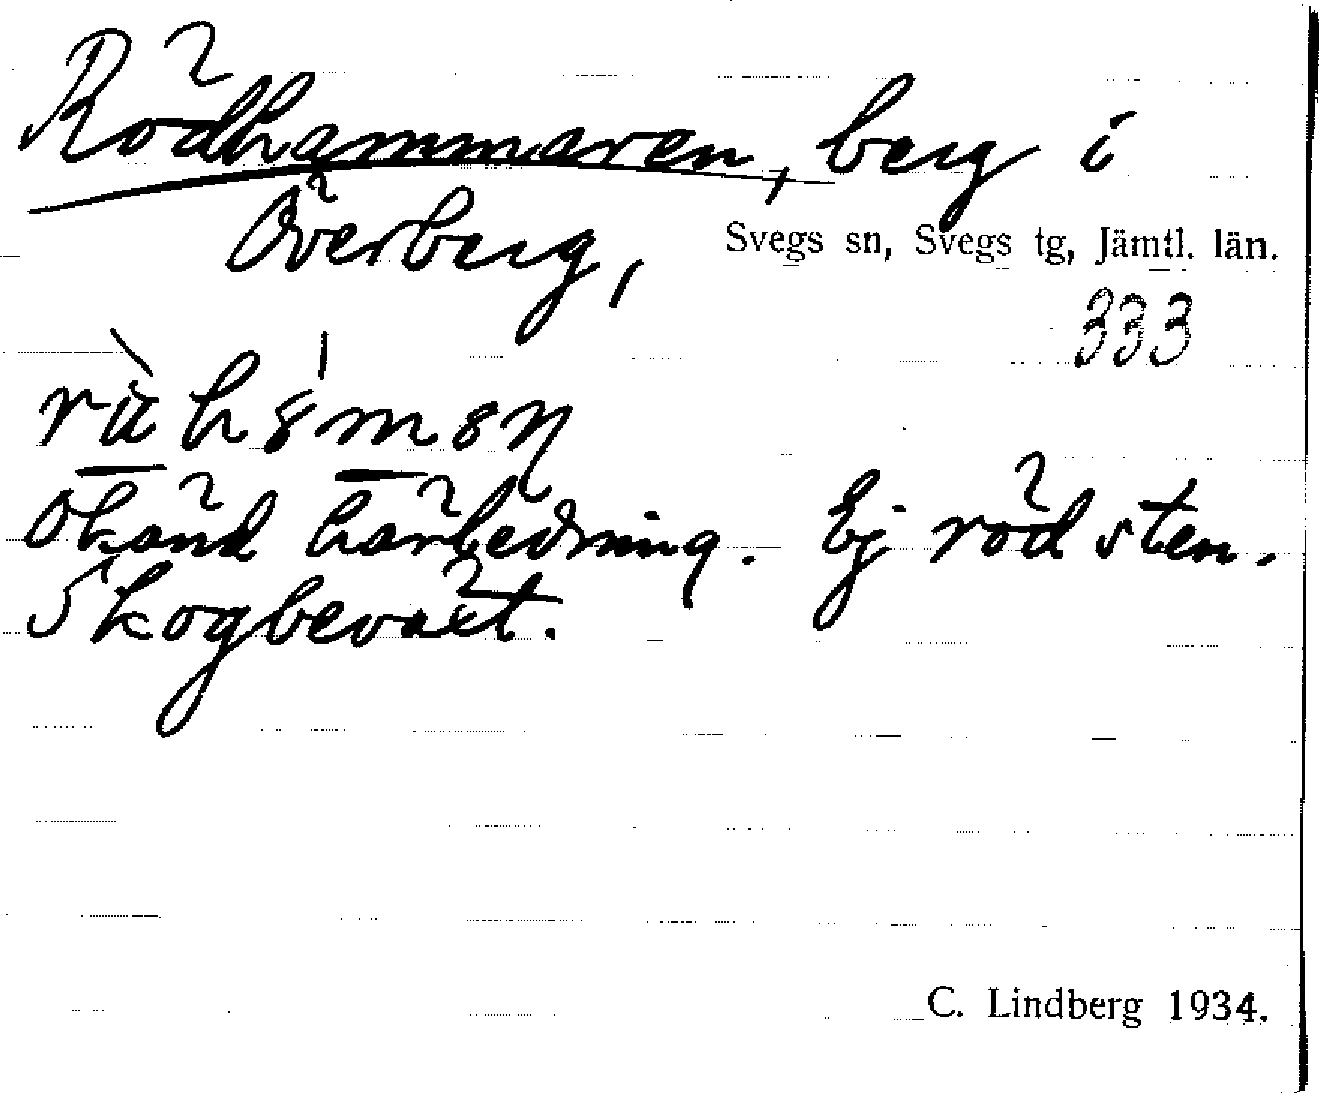 Rödhammaren, berg i
Överberg,
Svegs sn, Svegs tg, Jämtl. län.
333
Okänd härledning. Ej röd sten.
Skogbeväxt.
C. Lindberg 1934.